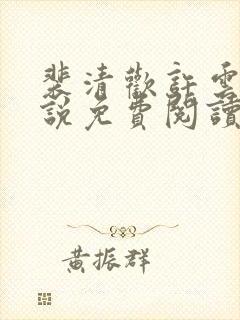 裴清歡許雲
說免費閱讀
黃振群